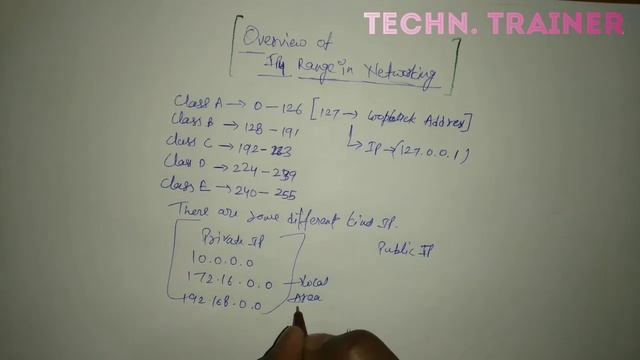 TECHN. TRAINER
Overview of
IPv4 Range in Networking
Class A → 0 – 126 [127 → Loopback Address]
Class B → 128 – 191
↳ IP → (127.0.0.1)
Class C → 192 – 223
Class D → 224 – 239
Class E → 240 – 255
There are some different kind IP.
Private IP
Public IP
10.0.0.0
172.16.0.0 → Local
192.168.0.0 Area